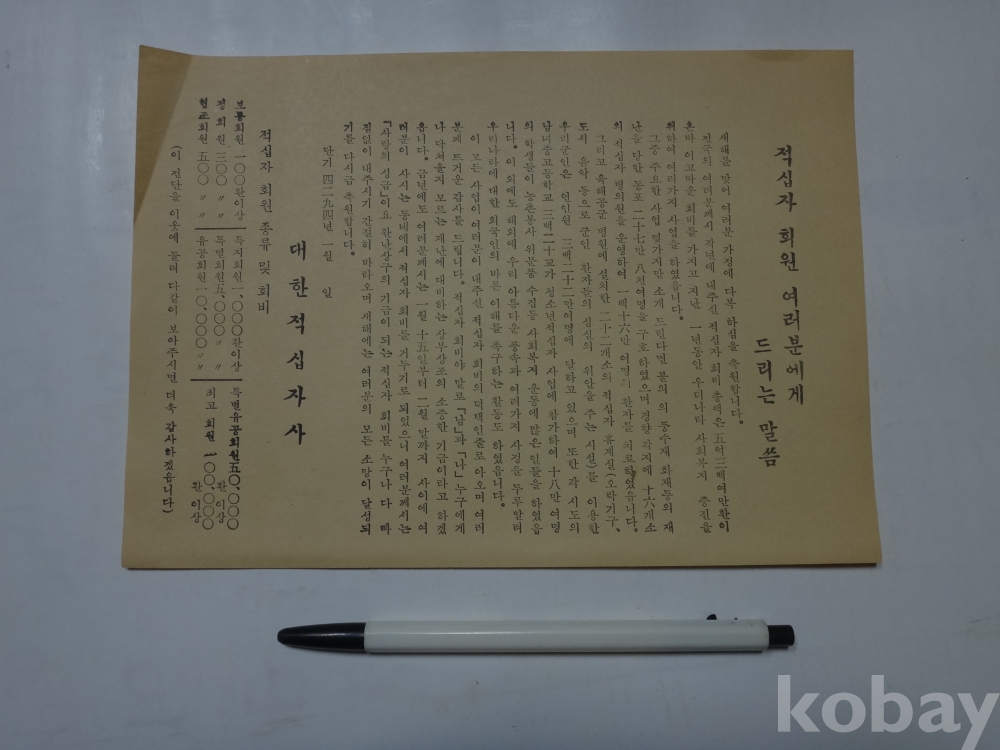 적십자 회원 여러분에게
드리는 말씀
새해를 맞어 여러분 가정에 다복 하심을 축원합니다.
전국의 여러분께서 작년에 내주신 적십자 회비 총액은 五억三백여만환이
온바 이 고마운 회비를 가지고 지난 一년동안 우리나라 사회복지 증진을
위하여 여러가지 사업을 하였읍니다.
그중 주요한 사업 몇가지만 소개 드린다면 불의 의 풍수재 화재등의 재
난을 당한 동포 二十七만 八천여명을 구호하였으며 경향 각지에 十六개소
의 적십자 병의원을 운영하여 一백十六만 여명의 환자를 치료하였읍니다.
그리고 육해공군 병원에 설치한 二十二개소의 적십자 휴게실(오락기구、
도서 음악 등으로 군인 환자들의 심신의 위안을 주는 시설)를 이용한
우리군인은 연인원 三백二十二만여명에 달하고 있으며 또한 각 시도의
남녀중고등학교 三백二十교가 청소년적십자 사업에 참가하여 十八만 여명
의 학생들이 농촌봉사 위문품 수집등 사회복지 운동에 많은 일들을 하였읍
니다. 이 외에도 해외에 우리 아름다운 풍속과 여러가지 사정을 두루알려
우리나라에 대한 외국인의 바른 이해를 촉구하는 활동도 하였읍니다.
이 모든 사업이 여러분이 내주신 적십자 회비의 덕택인줄로 아오며 여러
분께 뜨거운 감사를 드립니다. 적십자 회비야 말로 「남」과 「나」 누구에게
나 닥쳐올지 모르는 재난에 대비하는 상부상조의 소중한 기금이라고 하겠
읍니다. 금년에도 여러분께서는 一월 十五일부터 二월 말까지 사이에 여
러분이 사시는 동네에서 적십자 회비를 거두기로 되었으니 여러분께서는
「사랑의 성금」이요 환난상구의 기금이 되는 적십자 회비를 누구나 다 빠
짐없이 내주시기 간절히 바라오며 새해에는 여러분의 모든 소망이 달성되
기를 다시금 축원합니다.
단기 四二九四년 一월 일
대한적십자사
적십자 회원 종류 및 회비
보통회원 一〇〇환이상 특자회원 一、〇〇〇환이상 특별유공회원 五〇、〇〇〇환이상
정 회원 三〇〇 〃 〃 특별회원 五、〇〇〇 〃 〃 최고 회원 一〇〇、〇〇〇환이상
협조회원 五〇〇 〃 〃 유공회원 一〇、〇〇〇 〃 〃
(이 전단을 이웃에 돌려 다같이 보아주시면 더욱 감사하겠읍니다)
kobay